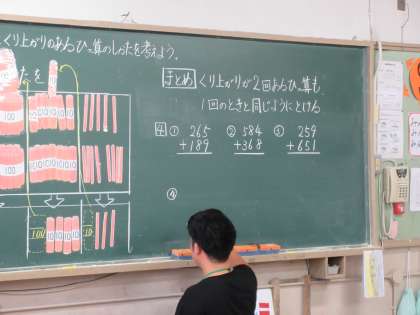 くり上がりのあるひっ算のしかたを考えよう。
たを
まとめ くり上がりが2回あるひっ算も、
1回のときと同じようにとける
4 ① 265 ② 584 ③ 259
+189 +368 +651
④
100 10 10 10 10
100 10 10 10 10
100 10 10 10 10 10